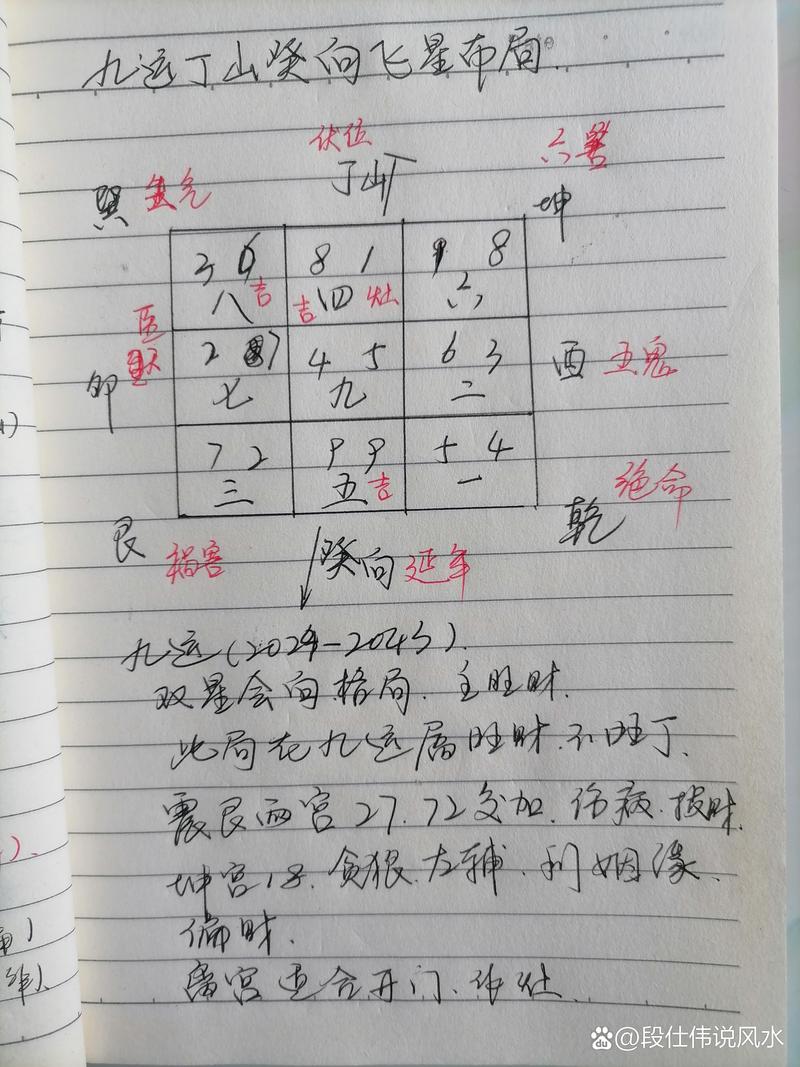 九运丁山癸向飞星布局.
伏位 六害
巽 生气 丁山 坤
3 6 8 1 1 8
八 吉 吉 四 灶 六
医
卯 2 7 4 5 6 3 酉 五鬼
七 九 二
7 2 9 9 5 4
三 五 吉 一
绝命
艮 祸害 癸向 延年 乾
九运(2024-2043).
双星会向格局.主旺财.
此局在九运属旺财.不旺丁.
震艮两宫27.72交加.伤病.损财.
坤宫18.贪狼.左辅.利姻缘.
偏财.
离宫适合开门.作灶.
du@段仕伟说风水